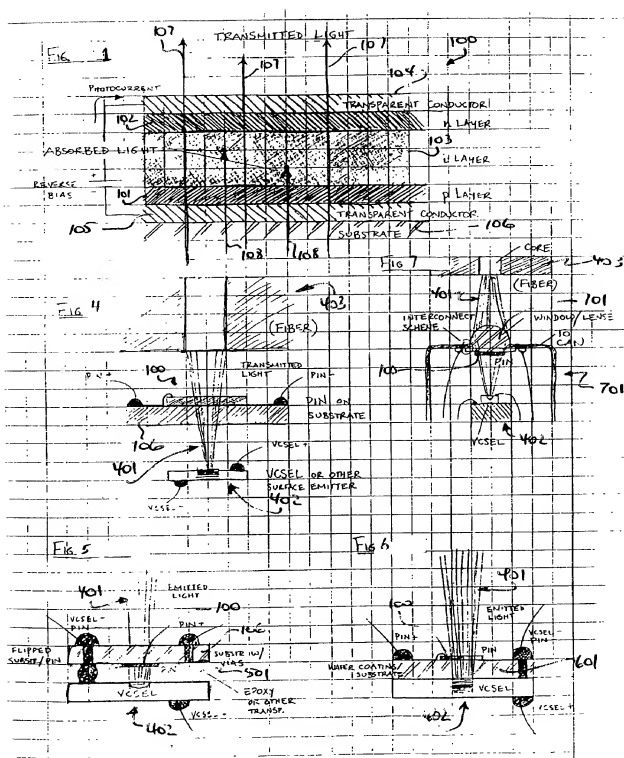 FIG 1
107
TRANSMITTED LIGHT
107
107
100
104
PHOTOCURRENT
TRANSPARENT CONDUCTOR
102
n LAYER
103
ABSORBED LIGHT
i LAYER
REVERSE
BIAS
101
p LAYER
105
TRANSPARENT CONDUCTOR
SUBSTRATE
106
108
108
FIG 4
403
(FIBER)
100
TRANSMITTED
LIGHT
PIN+
PIN-
PIN ON
SUBSTRATE
106
401
VCSEL+
VCSEL OR OTHER
SURFACE EMITTER
402
VCSEL-
FIG 7
CORE
403
401
(FIBER)
INTERCONNECT
SCHEME
701
WINDOW/LENSE
TO
CAN
100
PIN
701
VCSEL
402
FIG 5
401
EMITTED
LIGHT
100
VCSEL-
PIN-
PIN+
106
FLIPPED
SUBSTR/PIN
SUBSTR W/
VIAS
501
PIN
VCSEL
EPOXY
OR OTHER
TRANSP.
402
VCSEL-
FIG 6
401
100
EMITTED
LIGHT
PIN+
VCSEL-
PIN-
PIN
WAFER COATING/
SUBSTRATE
601
VCSEL
402
VCSEL+